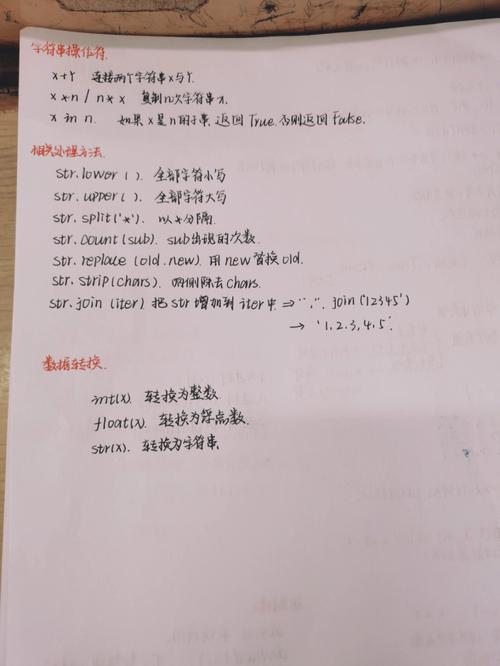 字符串操作符.
x+Y 连接两个字符串x与Y.
x*n / n*x 复制n次字符串x.
x in n. 如果x是n的子串,返回True.否则返回False.
相关处理方法.
str.lower(). 全部字符小写
str.upper(). 全部字符大写
str.split('*'). 以*分隔.
str.count(sub). sub出现的次数.
str.replace(old.new). 用new替换old.
str.strip(chars). 两侧除去chars.
str.join(iter) 把str增加到iter中. ⇒ ",". join('12345')
→ '1,2,3,4,5'.
数据转换.
int(x). 转换为整数.
float(x). 转换为浮点数.
str(x). 转换为字符串.